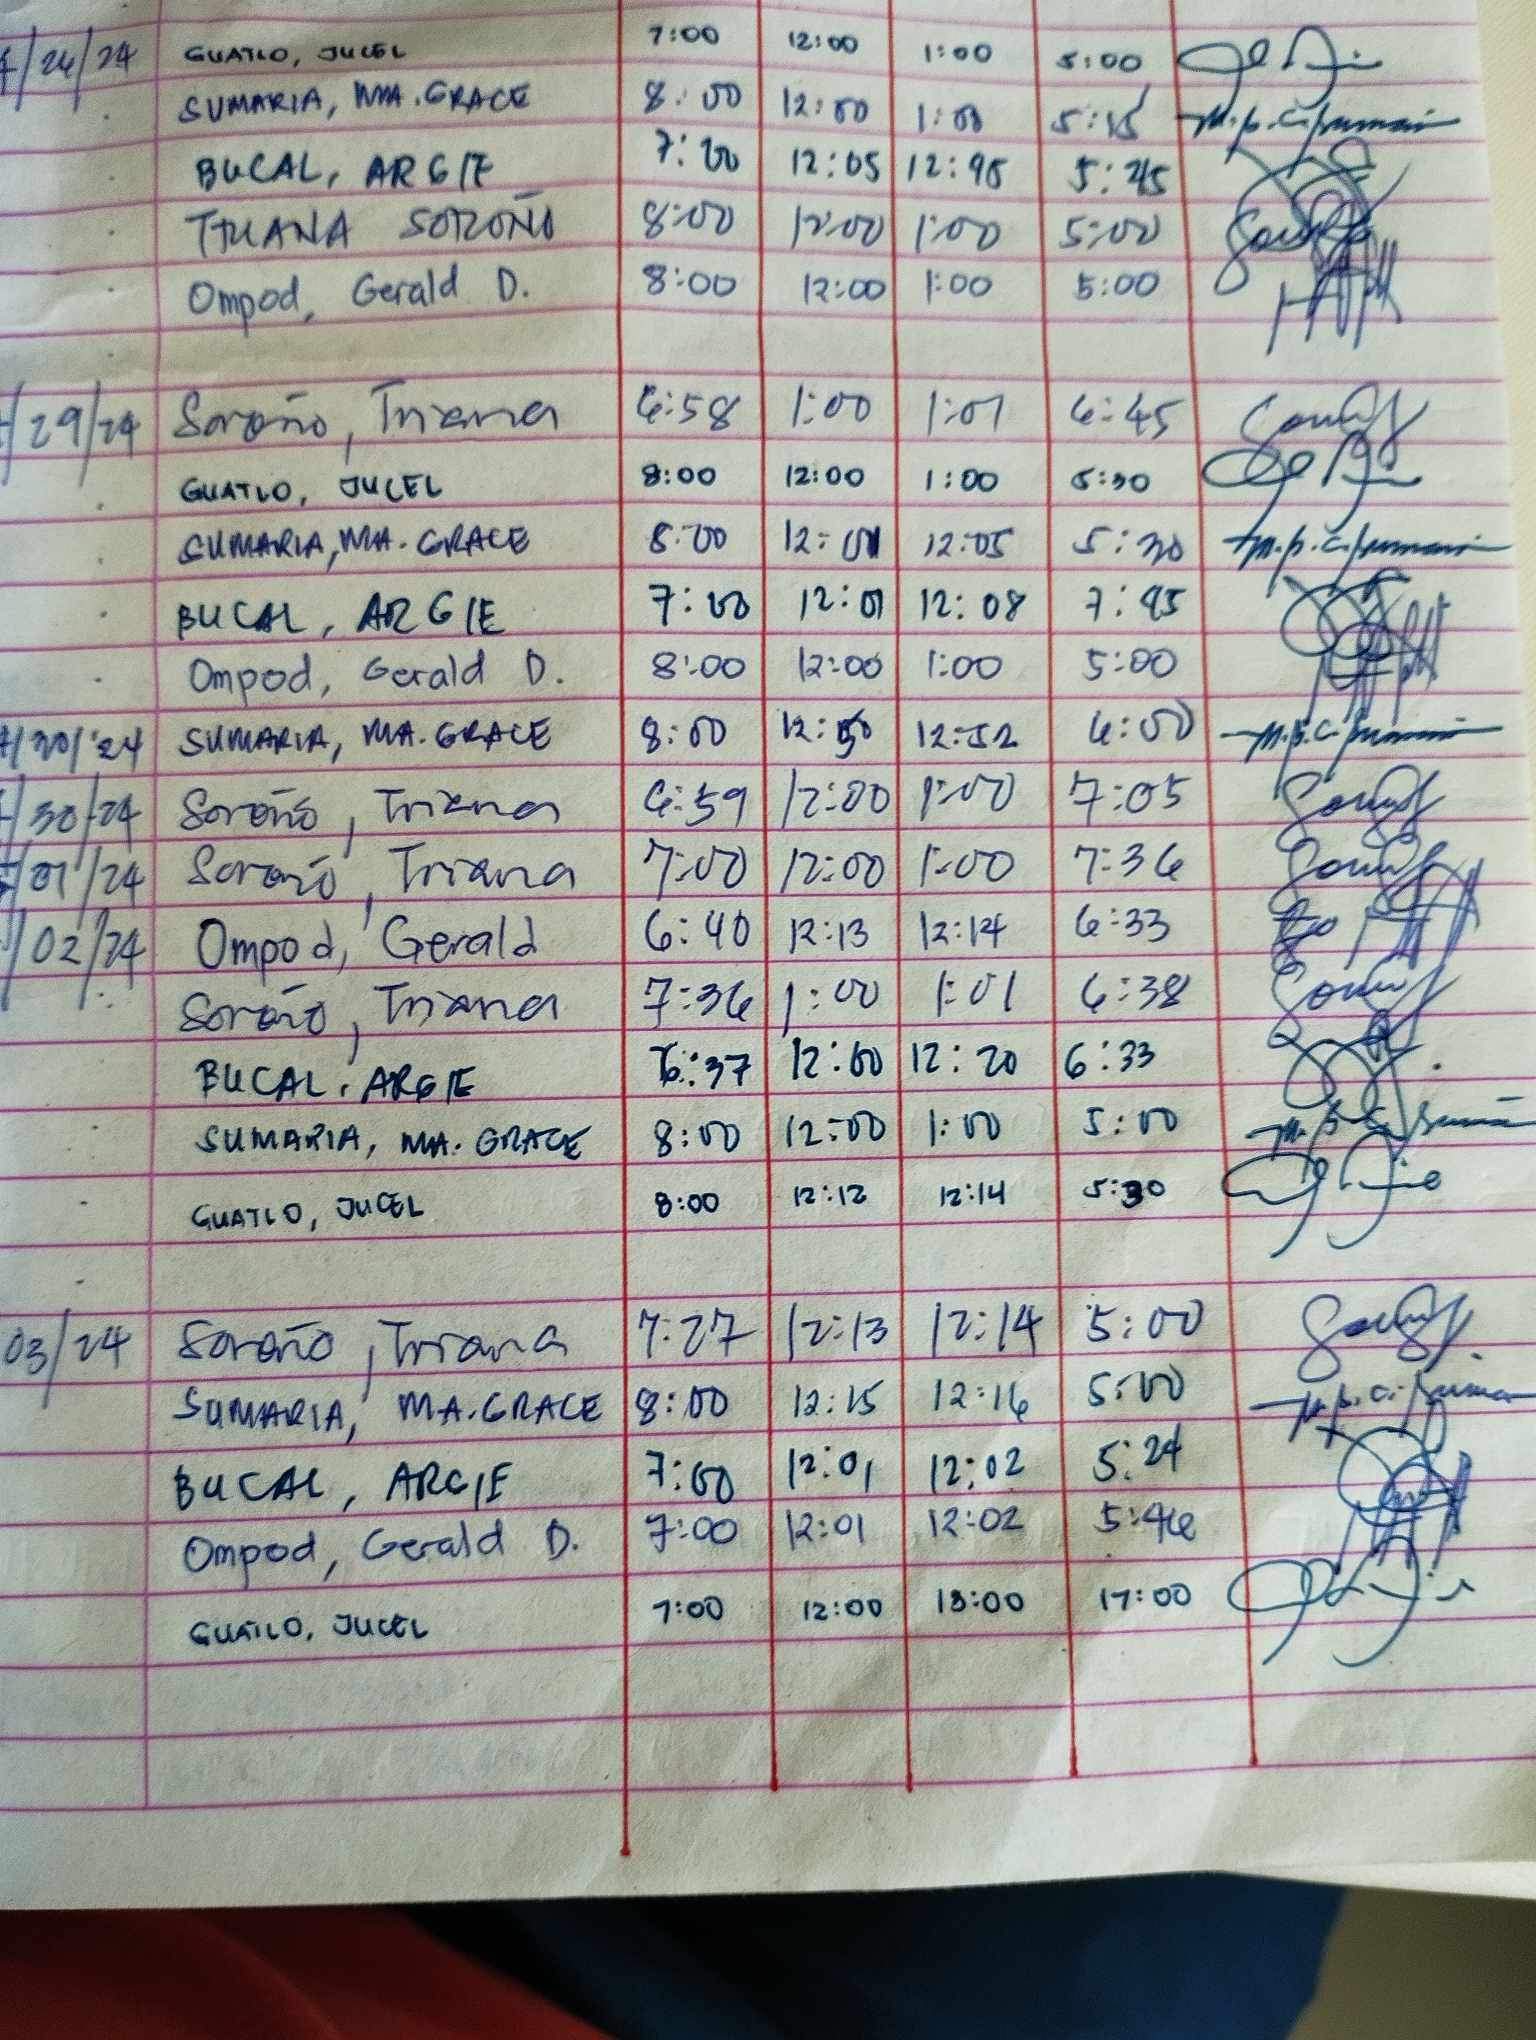 /26/24 GUATLO, JUCEL 7:00 12:00 1:00 5:00
SUMARIA, MA. GRACE 8:00 12:00 1:00 5:15
BUCAL, ARGIE 7:00 12:05 12:45 5:45
TRIANA SOROÑO 8:00 12:00 1:00 5:00
Ompod, Gerald D. 8:00 12:00 1:00 5:00
/29/24 Soroño, Triana 6:58 1:00 1:01 6:45
GUATLO, JUCEL 8:00 12:00 1:00 5:30
SUMARIA, MA. GRACE 8:00 12:01 12:05 5:30
BUCAL, ARGIE 7:00 12:01 12:08 7:45
Ompod, Gerald D. 8:00 12:00 1:00 5:00
/30/24 SUMARIA, MA. GRACE 8:00 12:50 12:52 6:00
/30/24 Soroño, Triana 6:59 12:00 1:00 7:05
/01/24 Soroño, Triana 7:00 12:00 1:00 7:36
/02/24 Ompod, Gerald 6:40 12:13 12:14 6:33
Soroño, Triana 7:36 1:00 1:01 6:38
BUCAL, ARGIE 6:37 12:00 12:20 6:33
SUMARIA, MA. GRACE 8:00 12:00 1:00 5:00
GUATLO, JUCEL 8:00 12:12 12:14 5:30
03/24 Soroño, Triana 7:27 12:13 12:14 5:00
SUMARIA, MA. GRACE 8:00 12:15 12:16 5:00
BUCAL, ARGIE 7:00 12:01 12:02 5:24
Ompod, Gerald D. 7:00 12:01 12:02 5:46
GUATLO, JUCEL 7:00 12:00 13:00 17:00